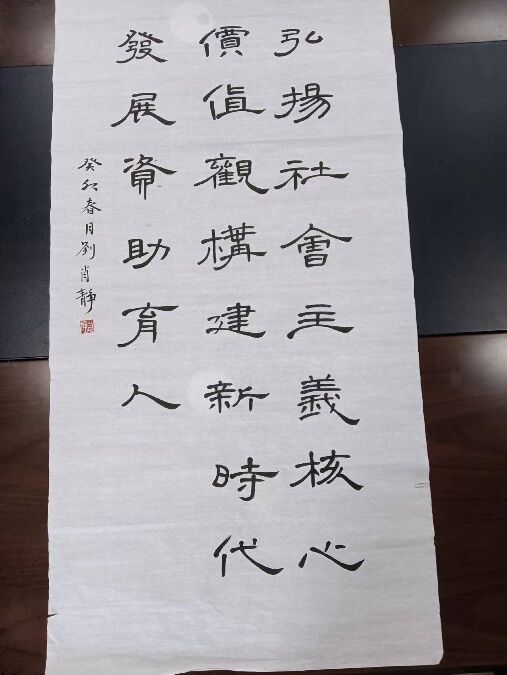 弘揚社會主義核心
價值觀構建新時代
發展資助育人
癸卯春月劉肖靜